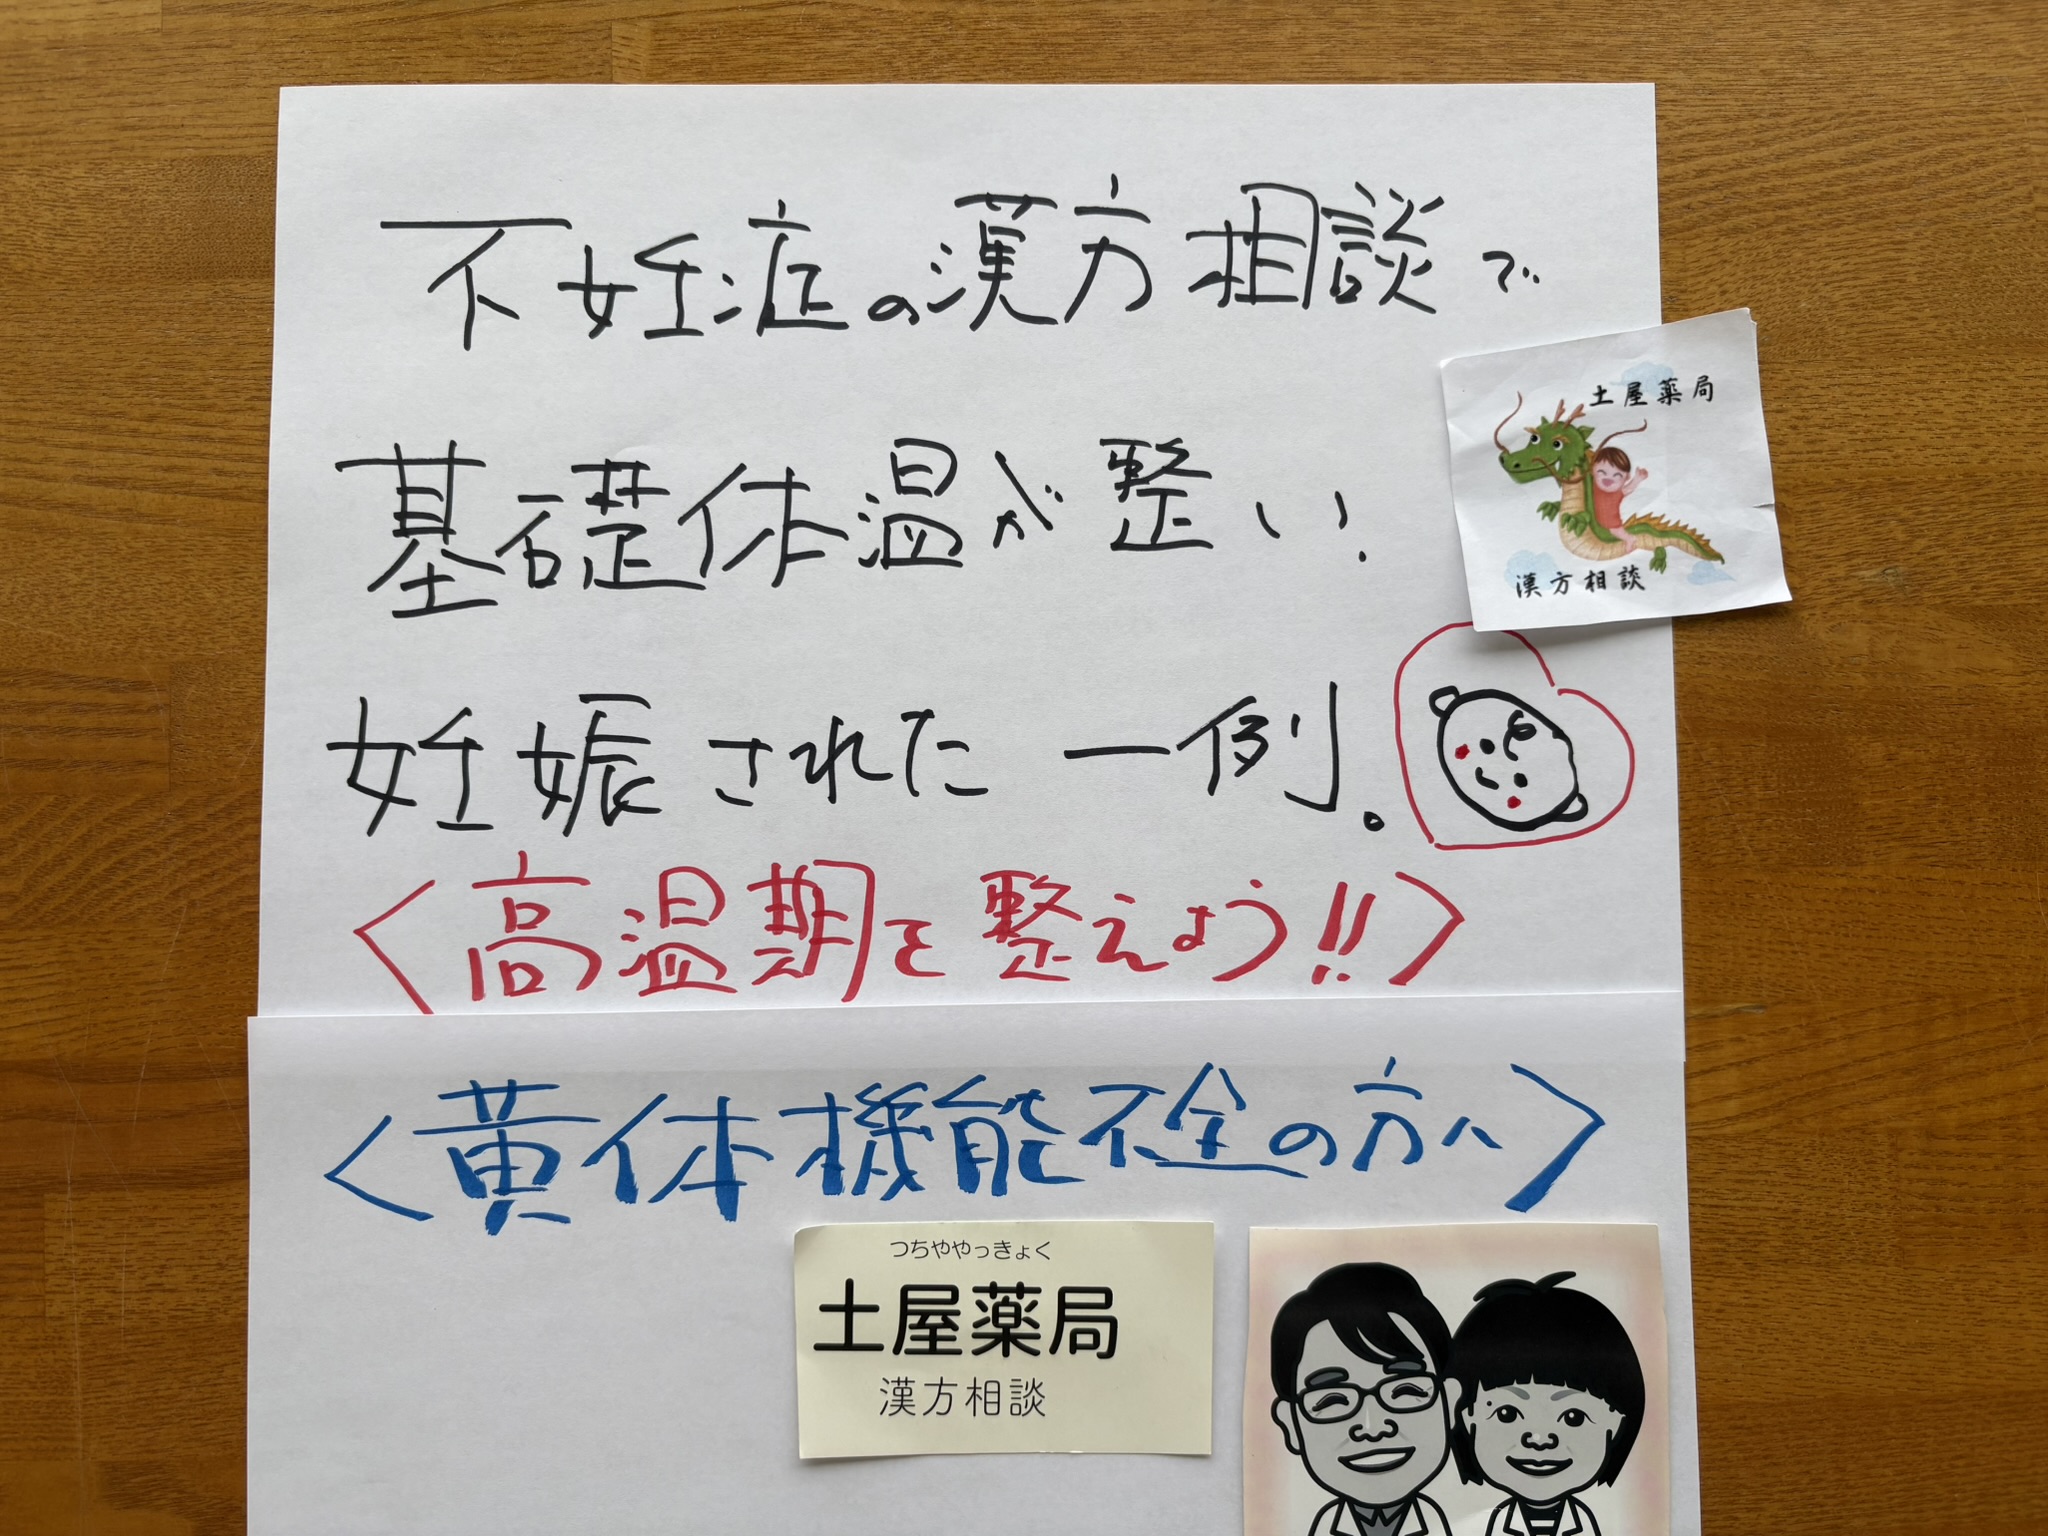 不妊症の漢方相談で
土屋薬局
漢方相談
基礎体温が整い、
妊娠された一例。
<高温期を整えよう!!>
<黄体機能不全の方へ>
つちややっきょく
土屋薬局
漢方相談